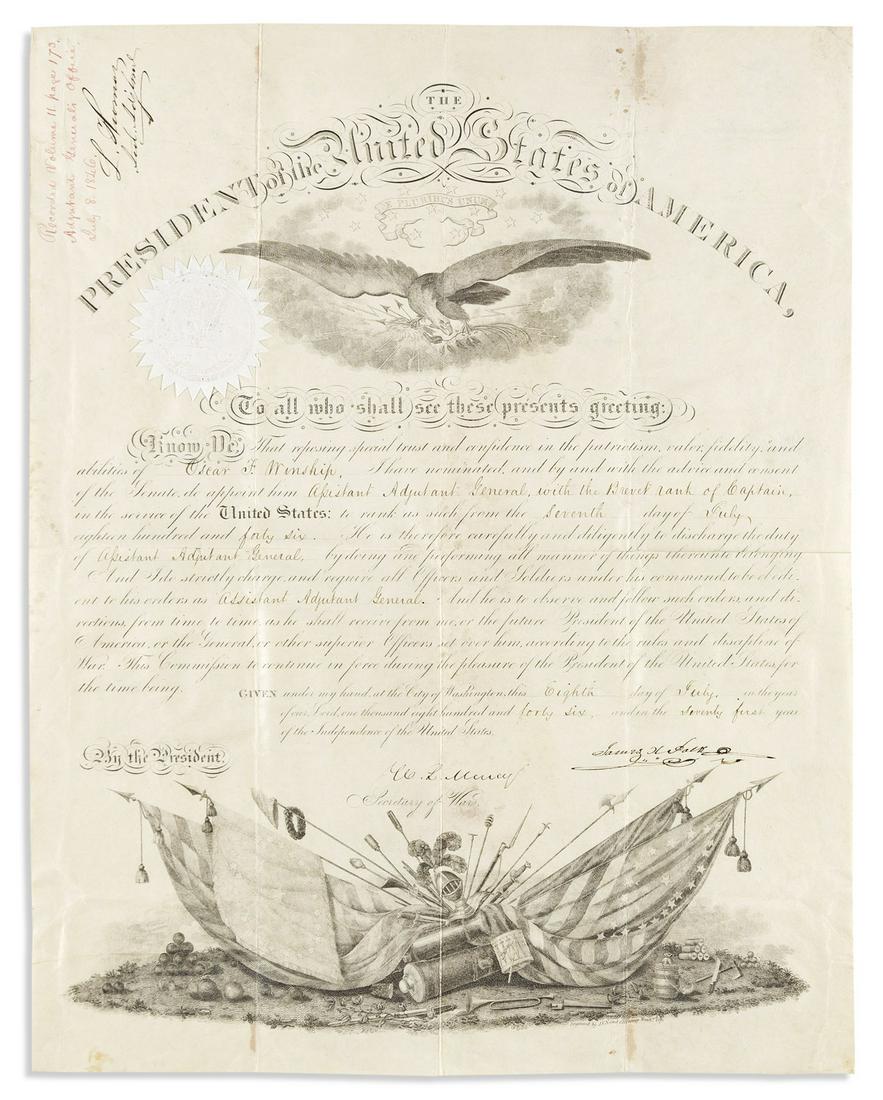 Recorded Volume 11 page 173.
Adjutant General's Office
July 8. 1846.
THE
PRESIDENT of the United States of AMERICA,
E PLURIBUS UNUM
To all who shall see these presents greeting:
Know Ye, That reposing special trust and confidence in the patriotism, valor, fidelity, and
abilities of Oscar F. Winship, I have nominated, and by and with the advice and consent
of the Senate, do appoint him Assistant Adjutant General, with the Brevet rank of Captain,
in the service of the United States: to rank as such from the Seventh day of July,
eighteen hundred and forty six. He is therefore carefully and diligently to discharge the duty
of Assistant Adjutant General, by doing and performing all manner of things thereunto belonging
And I do strictly charge, and require all Officers and Soldiers under his command, to be obedi-
ent to his orders as Assistant Adjutant General. And he is to observe and follow such orders, and di-
rections, from time to time, as he shall receive from me, or the future President of the United States of
America, or the General, or other superior Officers set over him, according to the rules and discipline of
War. This Commission to continue in force during the pleasure of the President of the United States, for
the time being.
GIVEN under my hand, at the City of Washington, this Eighth day of July, in the year
of our Lord, one thousand eight hundred and forty six, and in the seventy first year
of the Independence of the United States.
By the President.
James K Polk
W. L. Marcy
Secretary of War.